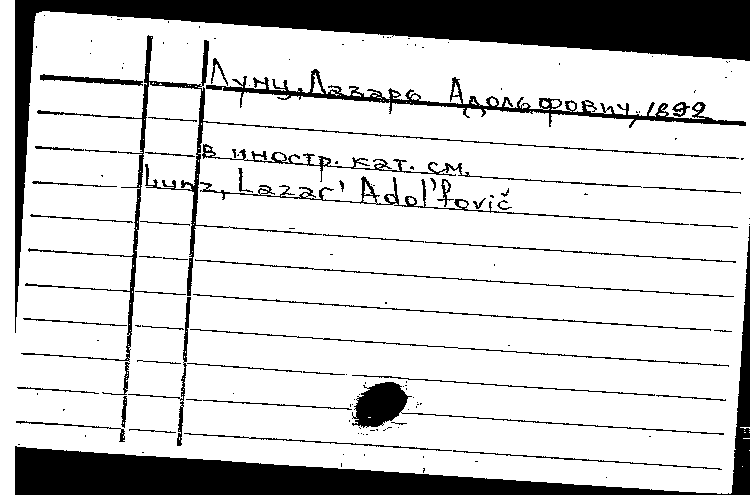 Лунц, Лазарь Адольфович, 1892
в иностр. кат. см.
Lunz, Lazar' Adol'fovič